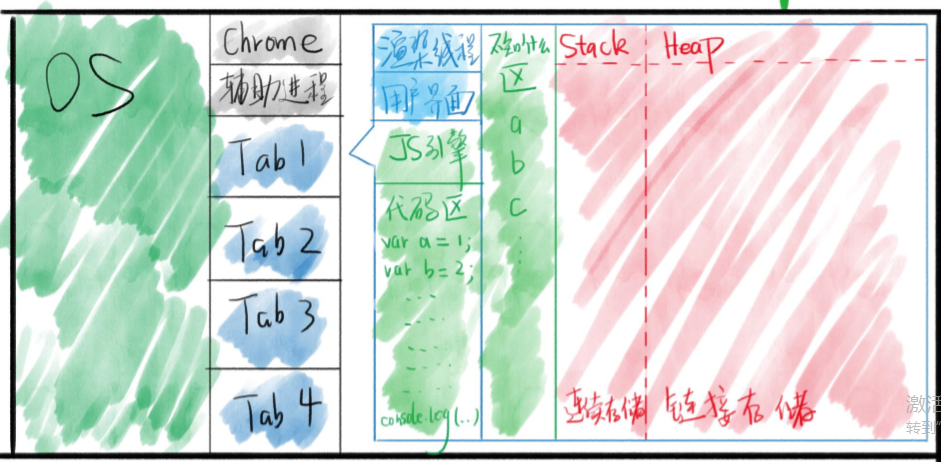 OS
Chrome
辅助进程
Tab 1
Tab 2
Tab 3
Tab 4
渲染线程
用户界面
JS引擎
代码区
var a = 1;
var b = 2;
...
...
...
...
console.log(..)
不知什么
区
a
b
c
Stack
连续存储
Heap
链接存储
激活
转到"